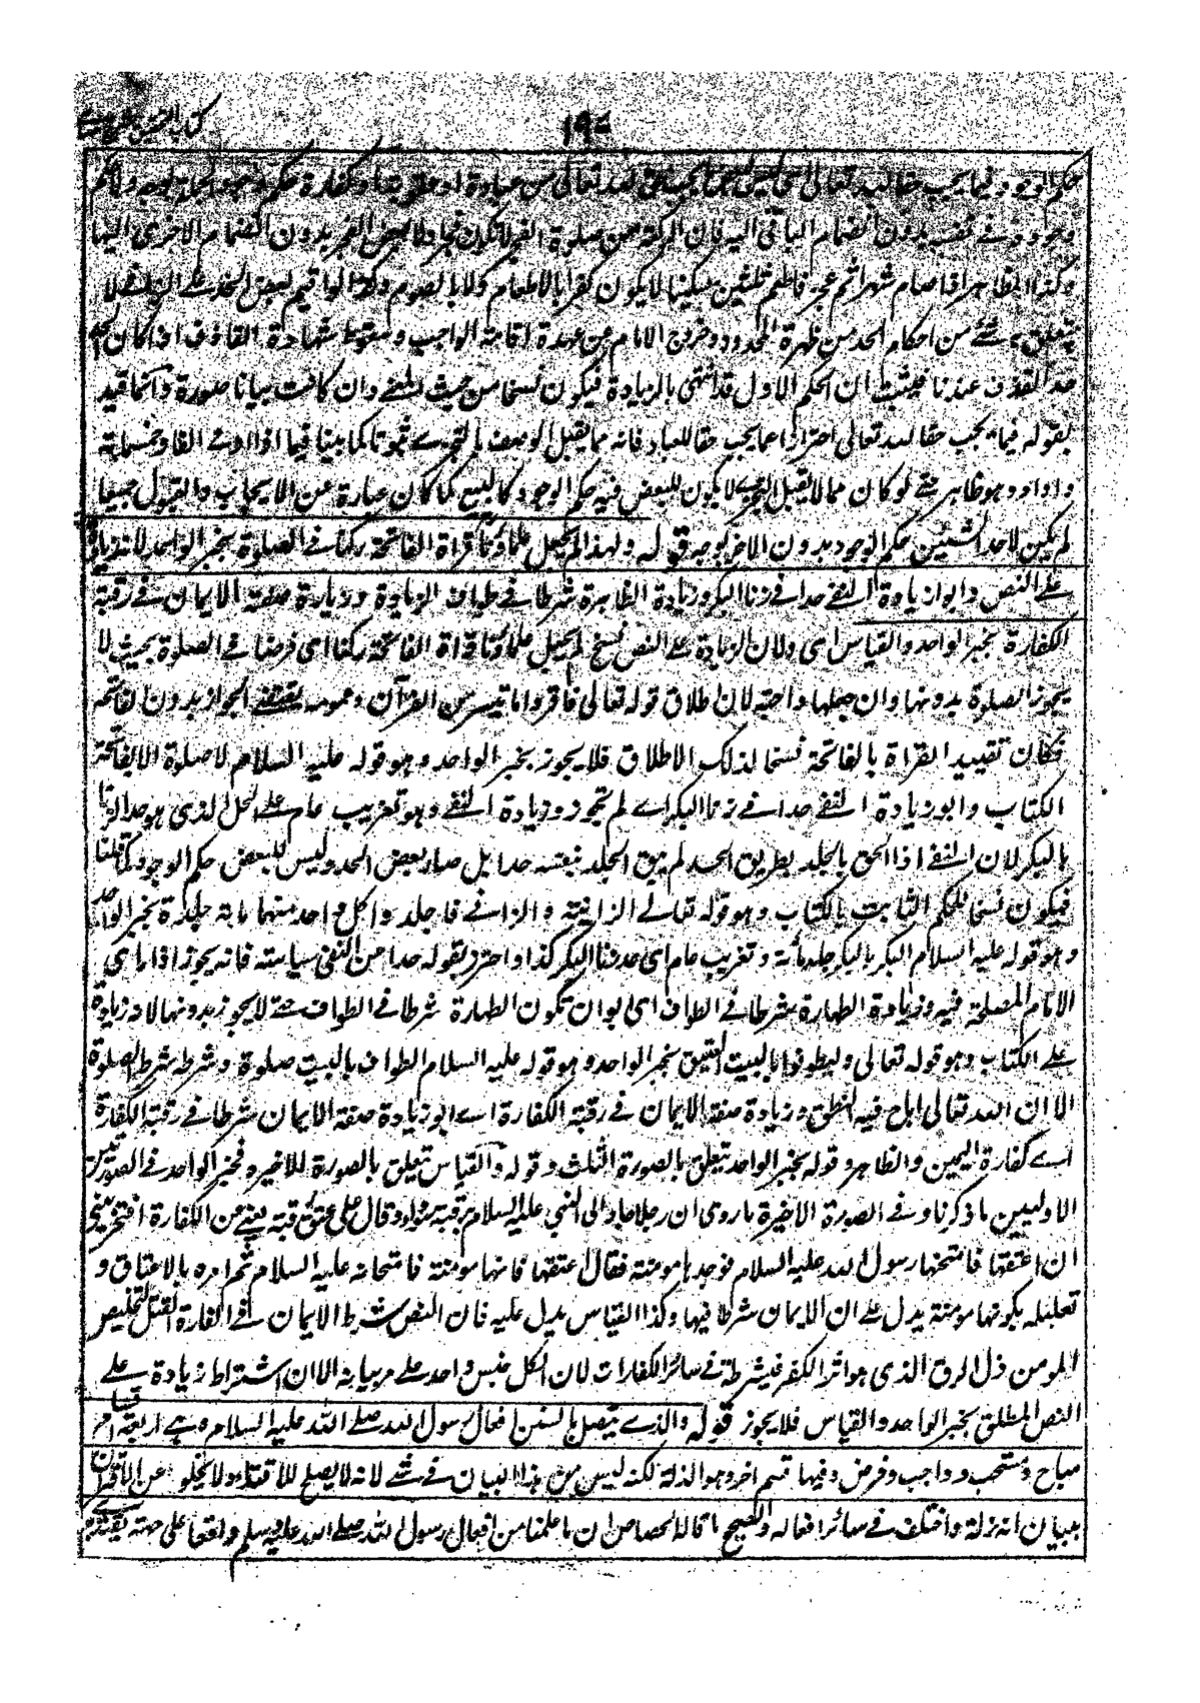 حكم الوجود فيما يجب حقا لله تعالى من عبادة او عقوبة او كفارة حكم
وجوده في نفسه بدون انضمام الباقي اليه فان الركعة من صلوة الفجر لا تكون فجرا ولا بعض الفجر بدون انضمام الاخرى اليها
وكذا المظاهر اذا صام شهرا ثم عجز فاطعم ثلثين مسكينا لا يكون مكفرا بالاطعام ولا بالصوم وكذا الواقيم لبعض الحد على الزاني لا
يتعلق به شئ من احكام الحد من طهرة المحدود وخروج الامام عن عهدة اقامة الواجب وسقوط شهادة القاذف اذا كان
حد القذف عندنا فيثبت ان الحكم الاول قد انتهى بالزيادة فيكون نسخا من حيث المعنى وان كانت بيانا صورة وانما قيد
بقوله فيما يجب حقا لله تعالى احترازا عما يجب حقا للعباد فانه مما يقبل الوصف بالتجزي ثبوتا كما بينا فيما اذا ادعى الفا وخمسمائة
واداؤه وهو ظاهر حتى لو كان مما لا يقبل التجزي لا يكون للبعض فيه حكم الوجود كالبيع لما كان عبارة عن الايجاب والقبول جميعا
لم يكن لاحد الشيئين حكم الوجود بدون الاخر بوجه قوله ولهذا لم يجعل علماؤنا قراة الفاتحة ركنا في الصلوة بخبر الواحد لانه زيادة
على النص وابوا زيادة النفي حدا في زنا البكر وزيادة الطهارة شرطا في طواف الزيادة وزيارة صفة الايمان في رقبة
الكفارة بخبر الواحد والقياس اى ولان الزيادة على النص نسخ لم يجعل علماؤنا قراة الفاتحة ركنا اى فرضا في الصلوة بحيث لا
يجوز الصلوة بدونها وان جعلوها واجبة لان اطلاق قوله تعالى فاقروا ما تيسر من القرآن وعمومه يقتضي الجواز بدون الفاتحة
فكان تقييد القراة بالفاتحة نسخا لذلك الاطلاق فلا يجوز بخبر الواحد وهو قوله عليه السلام لا صلوة الا بفاتحة
الكتاب وابو زيادة النفي حدا في زنا البكر اى لم تجوز وزيادة النفي وهو تغريب عام على الجلد الذى هو حد الزنا
بالبكر لان النفي اذا الحق بالجلد بطريق الحد لم يبق الجلد بنفسه حدا بل صار بعض الحد وليس للبعض حكم الوجود كما قلنا
فيكون نسخا للحكم الثابت بالكتاب وهو قوله تعالى الزانية والزاني فاجلدوا كل واحد منهما مائة جلدة بخبر الواحد
وهو قوله عليه السلام البكر بالبكر جلد مائة وتغريب عام اى حد زنا البكر كذا واحترز بقوله حدا من النفي سياسة فانه يجوز اذا راى
الامام المصلحة فيه وزيادة الطهارة شرطا في الطواف اى ابوا ان تكون الطهارة شرطا في الطواف حتى لا يجوز بدونها لانه زيادة
على الكتاب وهو قوله تعالى وليطوفوا بالبيت العتيق بخبر الواحد وهو قوله عليه السلام الطواف بالبيت صلوة وشرطه شرط الصلوة
الا ان الله تعالى اباح فيه النطق وزيادة صفة الايمان في رقبة الكفارة اى ابو زيادة صفة الايمان شرطا في رقبة الكفارة
اى كفارة اليمين والظاهر وقوله بخبر الواحد يتعلق بالصورة الثلث وقوله والقياس يتعلق بالصورة للاخيرة فخبر الواحد في الصورتين
الاوليين ما ذكرنا وفي الصورة الاخيرة ما روى ان رجلا جاء الى النبي عليه السلام برقبة سوداء وقال على عتق رقبة يعنى من الكفارة افتجزيني
ان اعتقها فامتحنها رسول الله عليه السلام فوجدها مومنة فقال اعتقها فانها مومنة فامتحانه عليه السلام ثم امره بالاعتاق و
تعليله بكونها مومنة يدل على ان الايمان شرط فيها وكذا القياس يدل عليه فان النص شرط الايمان في الكفارة القتل لتخليص
المومن ذل الرق الذى هو اثر الكفر فيشترط في سائر الكفارات لان الكل جنس واحد على مر بيانه الا ان اشتراط زيادة على
النص المطلق بخبر الواحد والقياس فلا يجوز قوله والذى يتصل بالسنن افعال رسول الله صلى الله عليه السلام وهى اربعة اقسام
مباح ومستحب وواجب وفرض وفيها قسم اخر وهو الزلة لكنه ليس من هذا البيان في شئ لانه لا يصلح للاقتداء ولا يخلو عن الاقتران
ببيان انه زلة واختلف في سائر افعاله والصحيح ما قاله الجصاص ان ما علمنا من افعال رسول الله صلى الله عليه وسلم واقعا على جهة يقتدى به